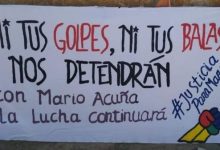 NI TUS GOLPES, NI TUS BALAS
NOS DETENDRÁN
con Mario Acuña
la Lucha continuará
#Justicia